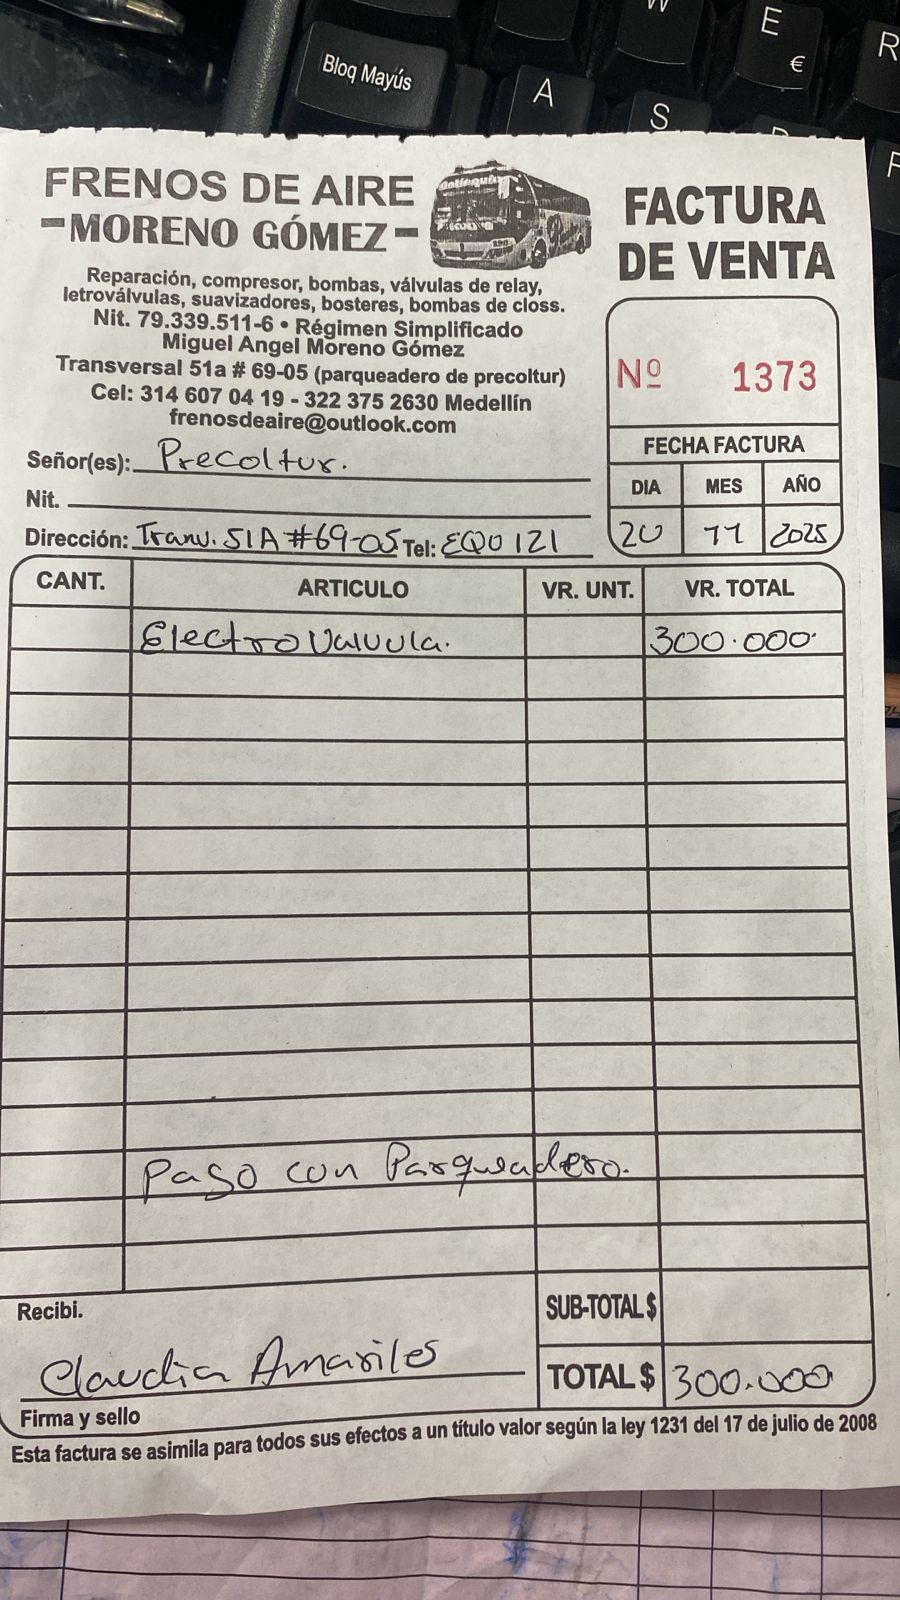 Bloq Mayús
A
S
W
E
€
R
FRENOS DE AIRE
-MORENO GÓMEZ-
Reparación, compresor, bombas, válvulas de relay,
letroválvulas, suavizadores, bosteres, bombas de closs.
Nit. 79.339.511-6 • Régimen Simplificado
Miguel Angel Moreno Gómez
Transversal 51a # 69-05 (parqueadero de precoltur)
Cel: 314 607 04 19 - 322 375 2630 Medellín
frenosdeaire@outlook.com
FACTURA
DE VENTA
Nº 1373
FECHA FACTURA
DIA MES AÑO
20 11 2025
Señor(es): Precoltur.
Nit.
Dirección: Tranv. 51A #69-05 Tel: EQU 121
CANT. ARTICULO VR. UNT. VR. TOTAL
Electro Valvula. 300.000
Pago con Parqueadero.
Recibi.
SUB-TOTAL $
Claudia Amariles
TOTAL $ 300.000
Firma y sello
Esta factura se asimila para todos sus efectos a un título valor según la ley 1231 del 17 de julio de 2008